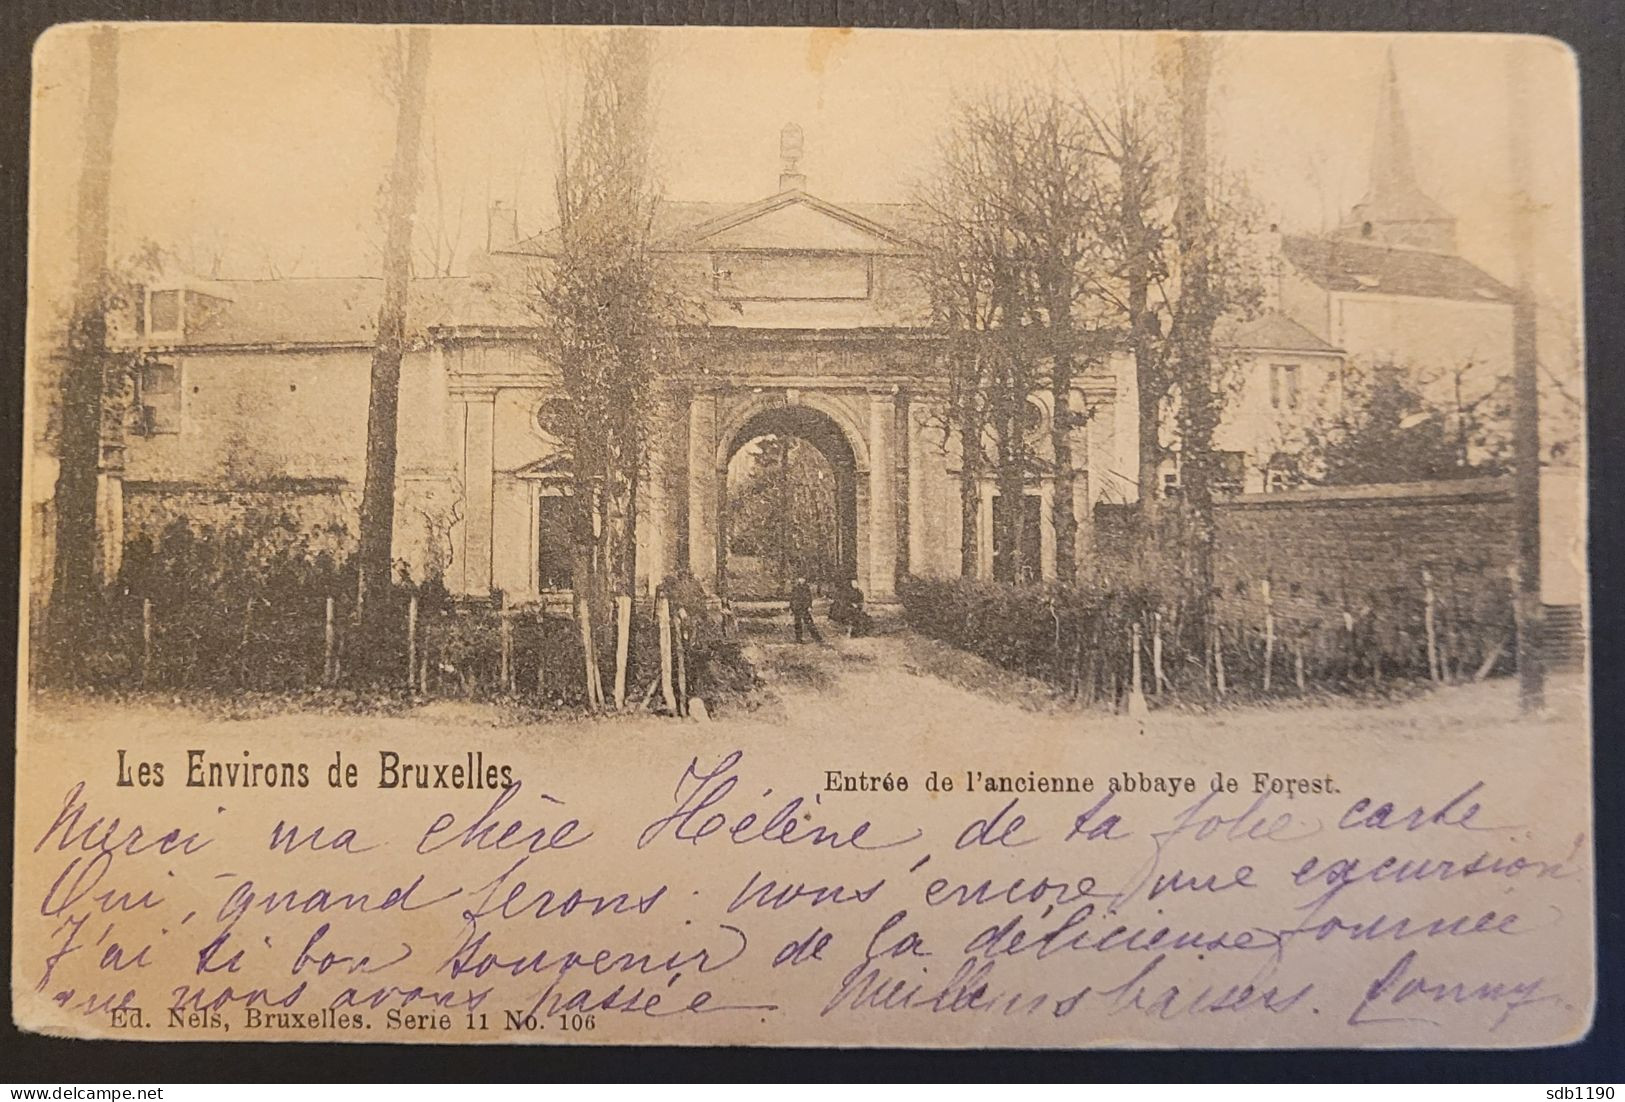 Les Environs de Bruxelles
Entrée de l'ancienne abbaye de Forest.
Merci ma chère Hélène, de ta jolie carte
Oui, quand ferons nous encore une excursion
J'ai si bon souvenir de la délicieuse journée
que nous avons passée. Meilleurs baisers.
Ed. Nels, Bruxelles. Serie 11 No. 106
sdb1190